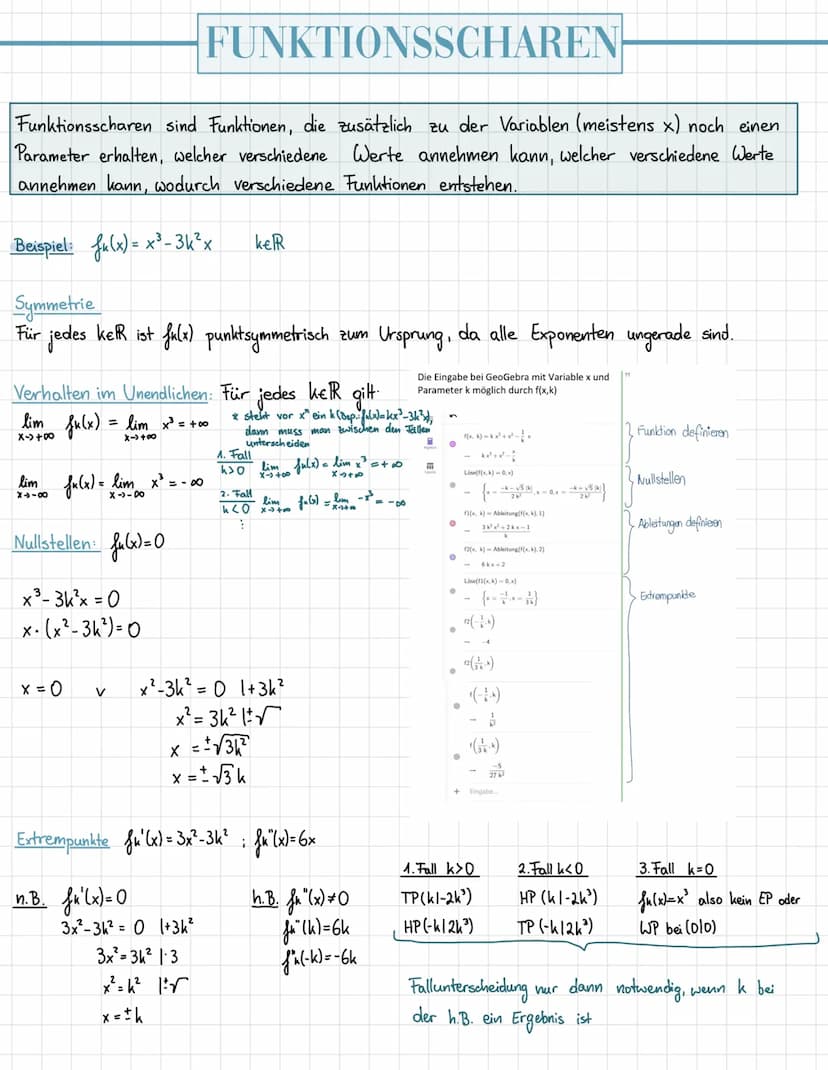 FUNKTIONSSCHAREN
Funktionsscharen sind Funktionen, die zusätzlich zu der Variablen (meistens x) noch einen
Parameter erhalten, welcher verschiedene Werte annehmen kann, welcher verschiedene Werte
annehmen kann, wodurch verschiedene Funktionen entstehen.
Beispiel: fₖ(x) = x³ - 3k²x k∈ℝ
Symmetrie
Für jedes k∈ℝ ist fₖ(x) punktsymmetrisch zum Ursprung, da alle Exponenten ungerade sind.
Verhalten im Unendlichen: Für jedes k∈ℝ gilt:
lim x→+∞ fₖ(x) = lim x→+∞ x³ = +∞
lim x→-∞ fₖ(x) = lim x→-∞ x³ = -∞
* steht vor xⁿ ein k (Bsp.: fₖ(x)=kx³-3k²x),
dann muss man zwischen den Fällen
unterscheiden
1. Fall
k>0 lim x→+∞ fₖ(x) = lim x→+∞ x³ = +∞
2. Fall
k<0 lim x→+∞ fₖ(x) = lim x→+∞ -x³ = -∞
⋮
Die Eingabe bei GeoGebra mit Variable x und
Parameter k möglich durch f(x,k)
Löse(f(x, k) = 0, x)
f1(x, k) = Ableitung(f(x, k), 1)
f2(x, k) = Ableitung(f(x, k), 2)
→ 6 k x + 2
Löse(f1(x, k) = 0, x)
→ {x = -1/k, x = 1/(3 k)}
f2(-1/k, k)
→ -4
f2(1/(3 k), k)
f(-1/k, k)
→ 1/k²
f(1/(3 k), k)
→ -5/(27 k²)
+ Eingabe...
Funktion definieren
Nullstellen
Ableitungen definieren
Extrempunkte
Nullstellen: fₖ(x)=0
x³ - 3k²x = 0
x·(x² - 3k²) = 0
x = 0 v x² - 3k² = 0 |+3k²
x² = 3k² |±√
x = ±√3k²
x = ±√3 k
Extrempunkte fₖ'(x) = 3x² - 3k² ; fₖ"(x)=6x
n.B. fₖ'(x)=0
3x² - 3k² = 0 |+3k²
3x² = 3k² |:3
x² = k² |±√
x = ±k
h.B. fₖ"(x)≠0
fₖ"(k)=6k
fₖ"(-k)=-6k
1. Fall k>0
TP(k|-2k³)
HP(-k|2k³)
2. Fall k<0
HP (k|-2k³)
TP (-k|2k³)
3. Fall k=0
fₖ(x)=x³ also kein EP oder
WP bei (0|0)
Fallunterscheidung nur dann notwendig, wenn k bei
der h.B. ein Ergebnis ist